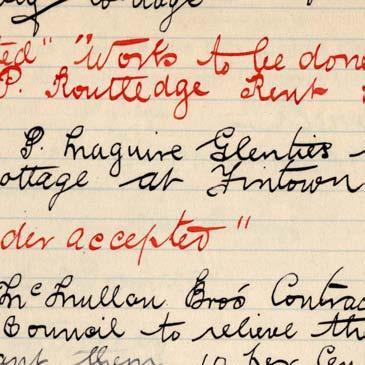 ted" "Works to be done
P. Routledge Rent
P. Maguire Glenties
ottage at Fintown
der accepted"
McMullan Bros Contrac
Council to relieve the
ant them 10 per Cen